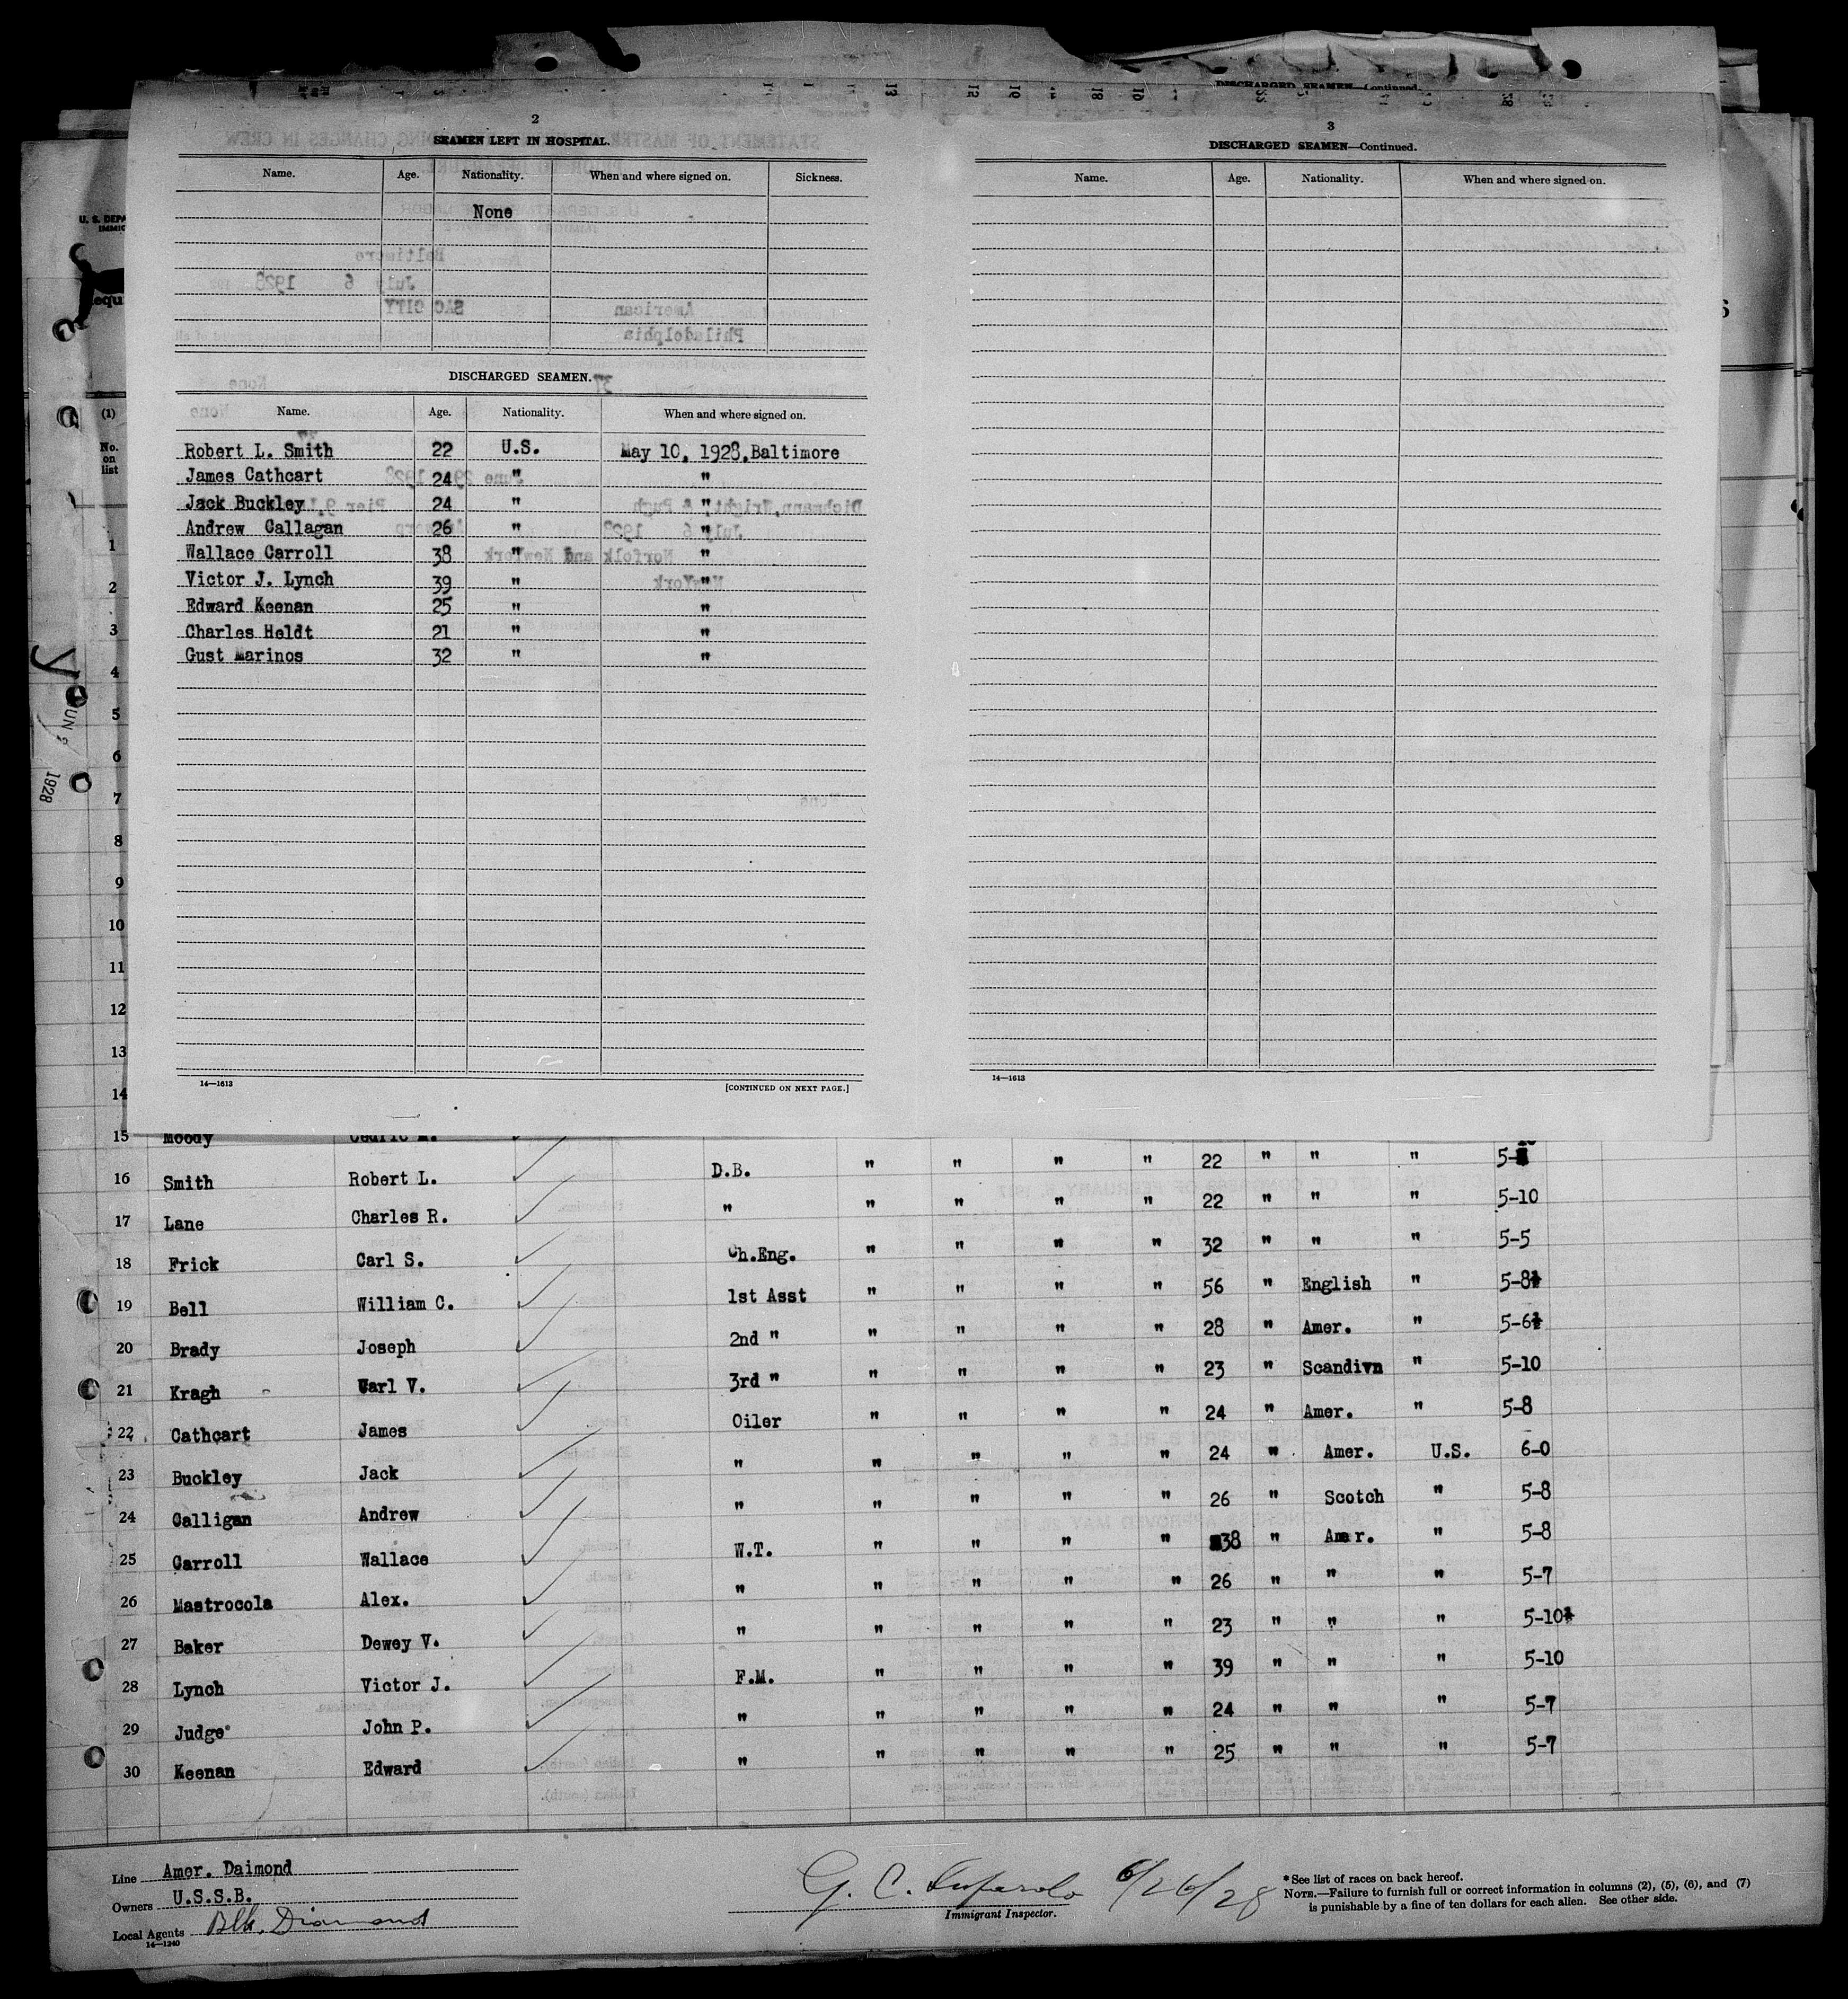 DISCHARGED SEAMEN—Continued.
2
SEAMEN LEFT IN HOSPITAL.
Name. Age. Nationality. When and where signed on. Sickness.
None
DISCHARGED SEAMEN.
Name. Age. Nationality. When and where signed on.
Robert L. Smith 22 U.S. May 10, 1928, Baltimore
James Cathcart 24 " "
Jack Buckley 24 " "
Andrew Callagan 26 " "
Wallace Carroll 38 " "
Victor J. Lynch 39 " "
Edward Keenan 25 " "
Charles Heldt 21 " "
Gust Marinos 32 " "
14—1613 [CONTINUED ON NEXT PAGE.]
3
DISCHARGED SEAMEN—Continued.
Name. Age. Nationality. When and where signed on.
14—1613
(1)
No. on list
1
2
3
4
5
6
7
8
9
10
11
12
13
14
15 Moody Cedric M.
16 Smith Robert L. D.B. " " " " 22 " " " 5-
17 Lane Charles R. " " " " " 22 " " " 5-10
18 Frick Carl S. Ch.Eng. " " " " 32 " " " 5-5
19 Bell William C. 1st Asst " " " " 56 " English " 5-8½
20 Brady Joseph 2nd " " " " " 28 " Amer. " 5-6½
21 Kragh Carl V. 3rd " " " " " 23 " Scandivn " 5-10
22 Cathcart James Oiler " " " " 24 " Amer. " 5-8
23 Buckley Jack " " " " " 24 " Amer. U.S. 6-0
24 Calligan Andrew " " " " " 26 " Scotch " 5-8
25 Carroll Wallace W.T. " " " " 38 " Amer. " 5-8
26 Mastrocola Alex. " " " " " 26 " " " 5-7
27 Baker Dewey V. " " " " " 23 " " " 5-10½
28 Lynch Victor J. F.M. " " " " 39 " " " 5-10
29 Judge John P. " " " " " 24 " " " 5-7
30 Keenan Edward " " " " " 25 " " " 5-7
Line Amer. Daimond
Owners U.S.S.B.
Local Agents Blk. Diamond
14—1240
G. C. 6/26/28
Immigrant Inspector.
*See list of races on back hereof.
NOTE.—Failure to furnish full or correct information in columns (2), (5), (6), and (7)
is punishable by a fine of ten dollars for each alien. See other side.